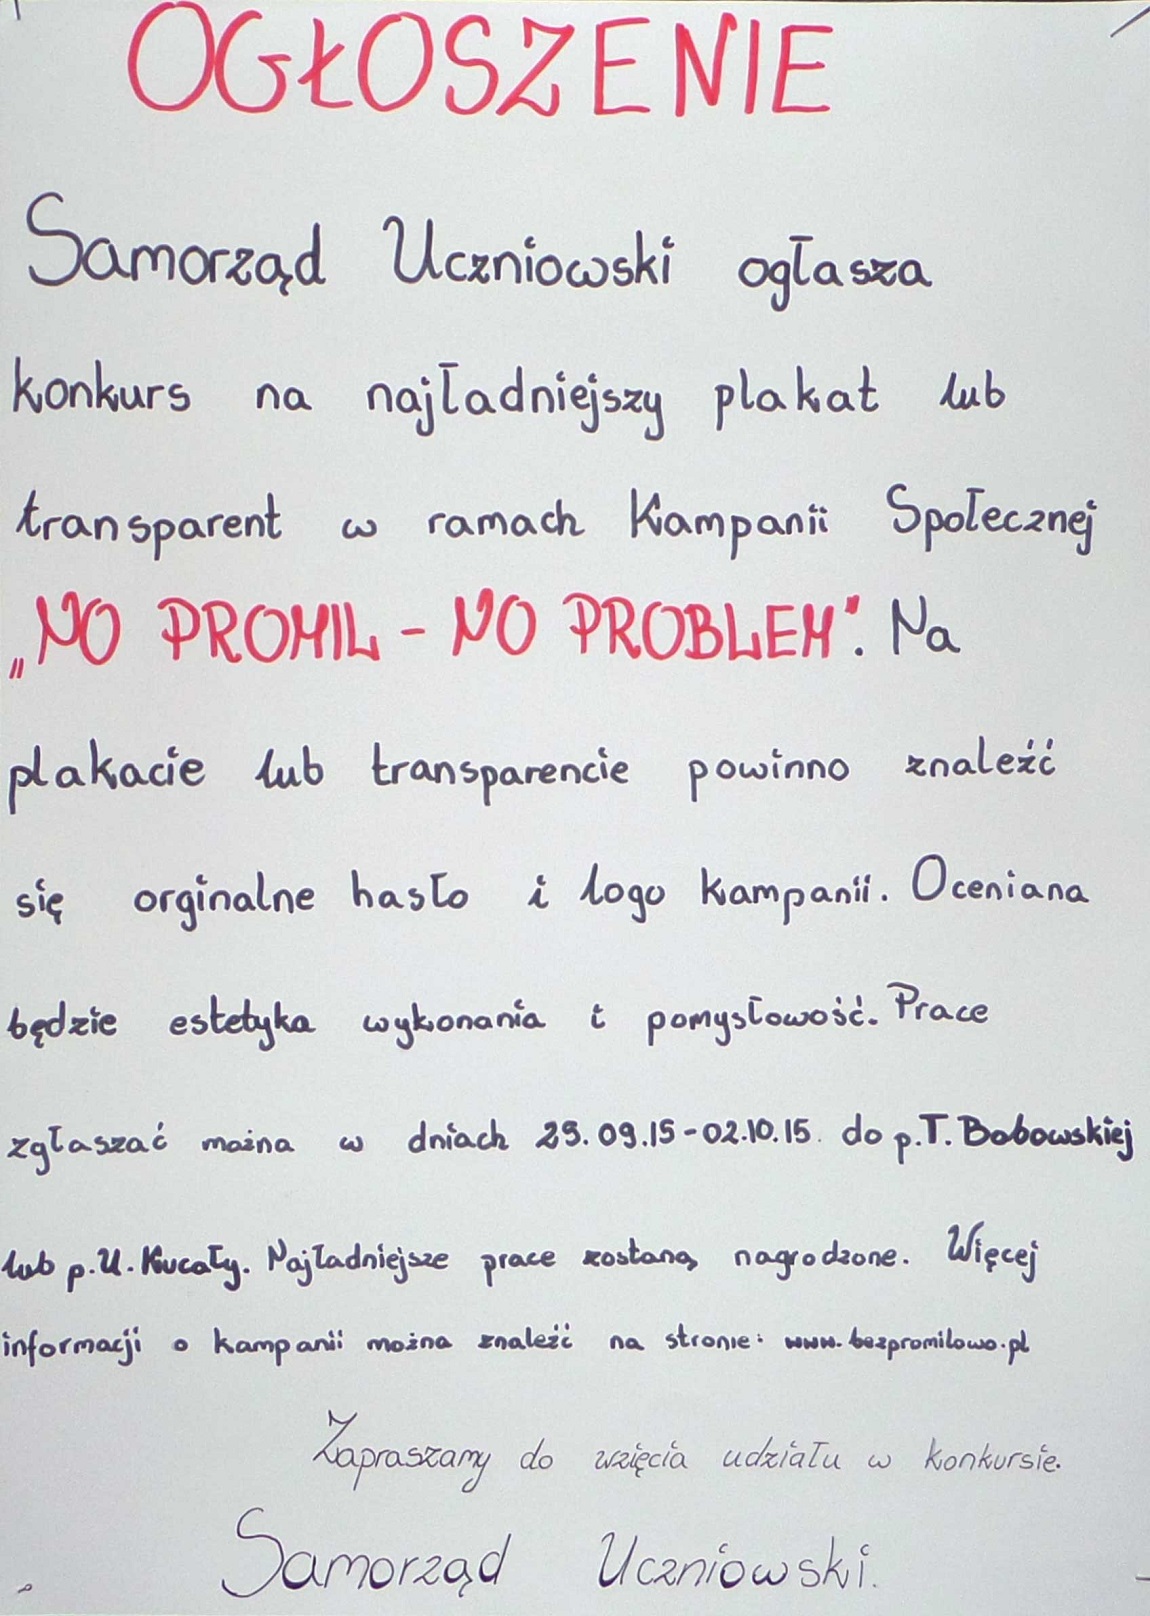 OGŁOSZENIE
Samorząd Uczniowski ogłasza
konkurs na najładniejszy plakat lub
transparent w ramach Kampanii Społecznej
„NO PROMIL - NO PROBLEM". Na
plakacie lub transparencie powinno znaleźć
się orginalne hasło i logo kampanii. Oceniana
będzie estetyka wykonania i pomysłowość. Prace
zgłaszać można w dniach 29.09.15-02.10.15. do p.T. Bobowskiej
lub p.U. Kucały. Najładniejsze prace zostaną nagrodzone. Więcej
informacji o kampanii można znaleźć na stronie: www.bezpromilowo.pl
Zapraszamy do wzięcia udziału w konkursie.
Samorząd Uczniowski.